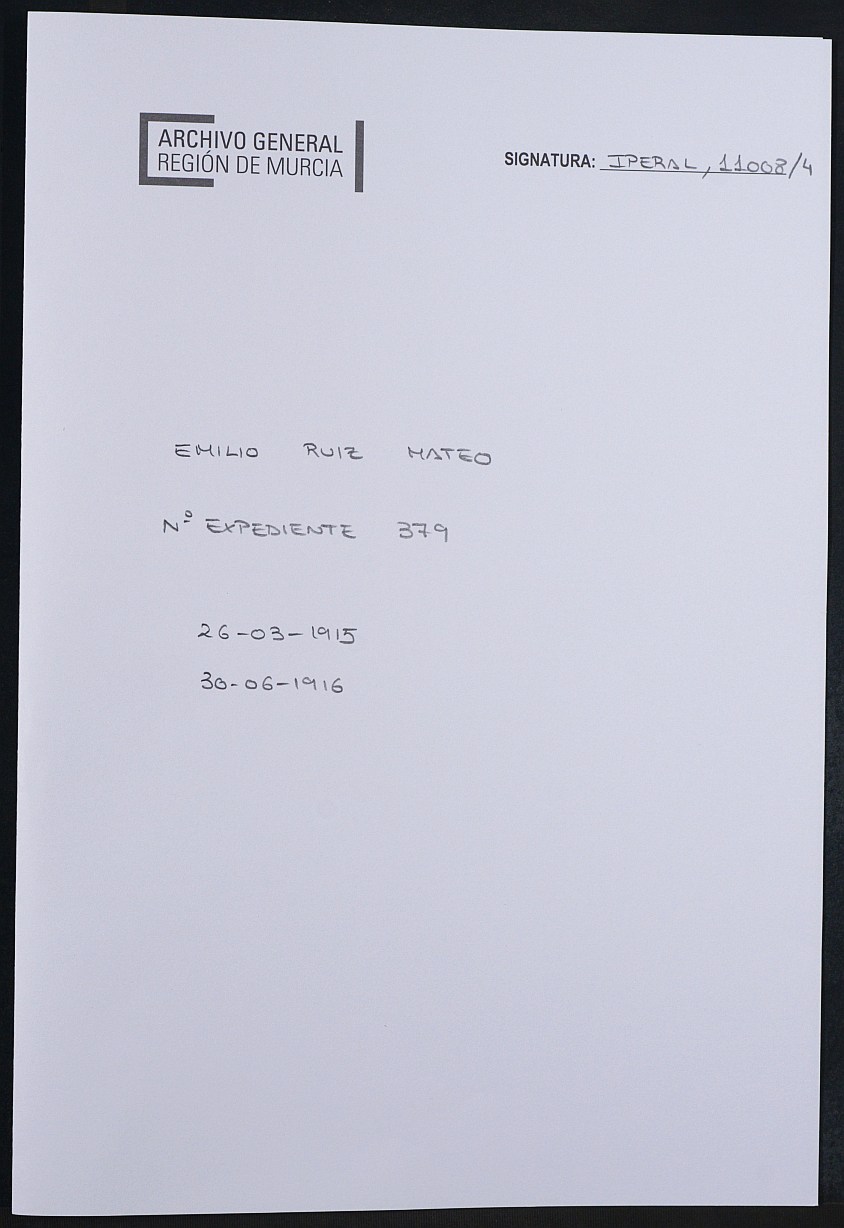 ARCHIVO GENERAL
REGIÓN DE MURCIA
SIGNATURA: IPERAL, 11008/4
EMILIO RUIZ MATEO
Nº EXPEDIENTE 379
26-03-1915
30-06-1916